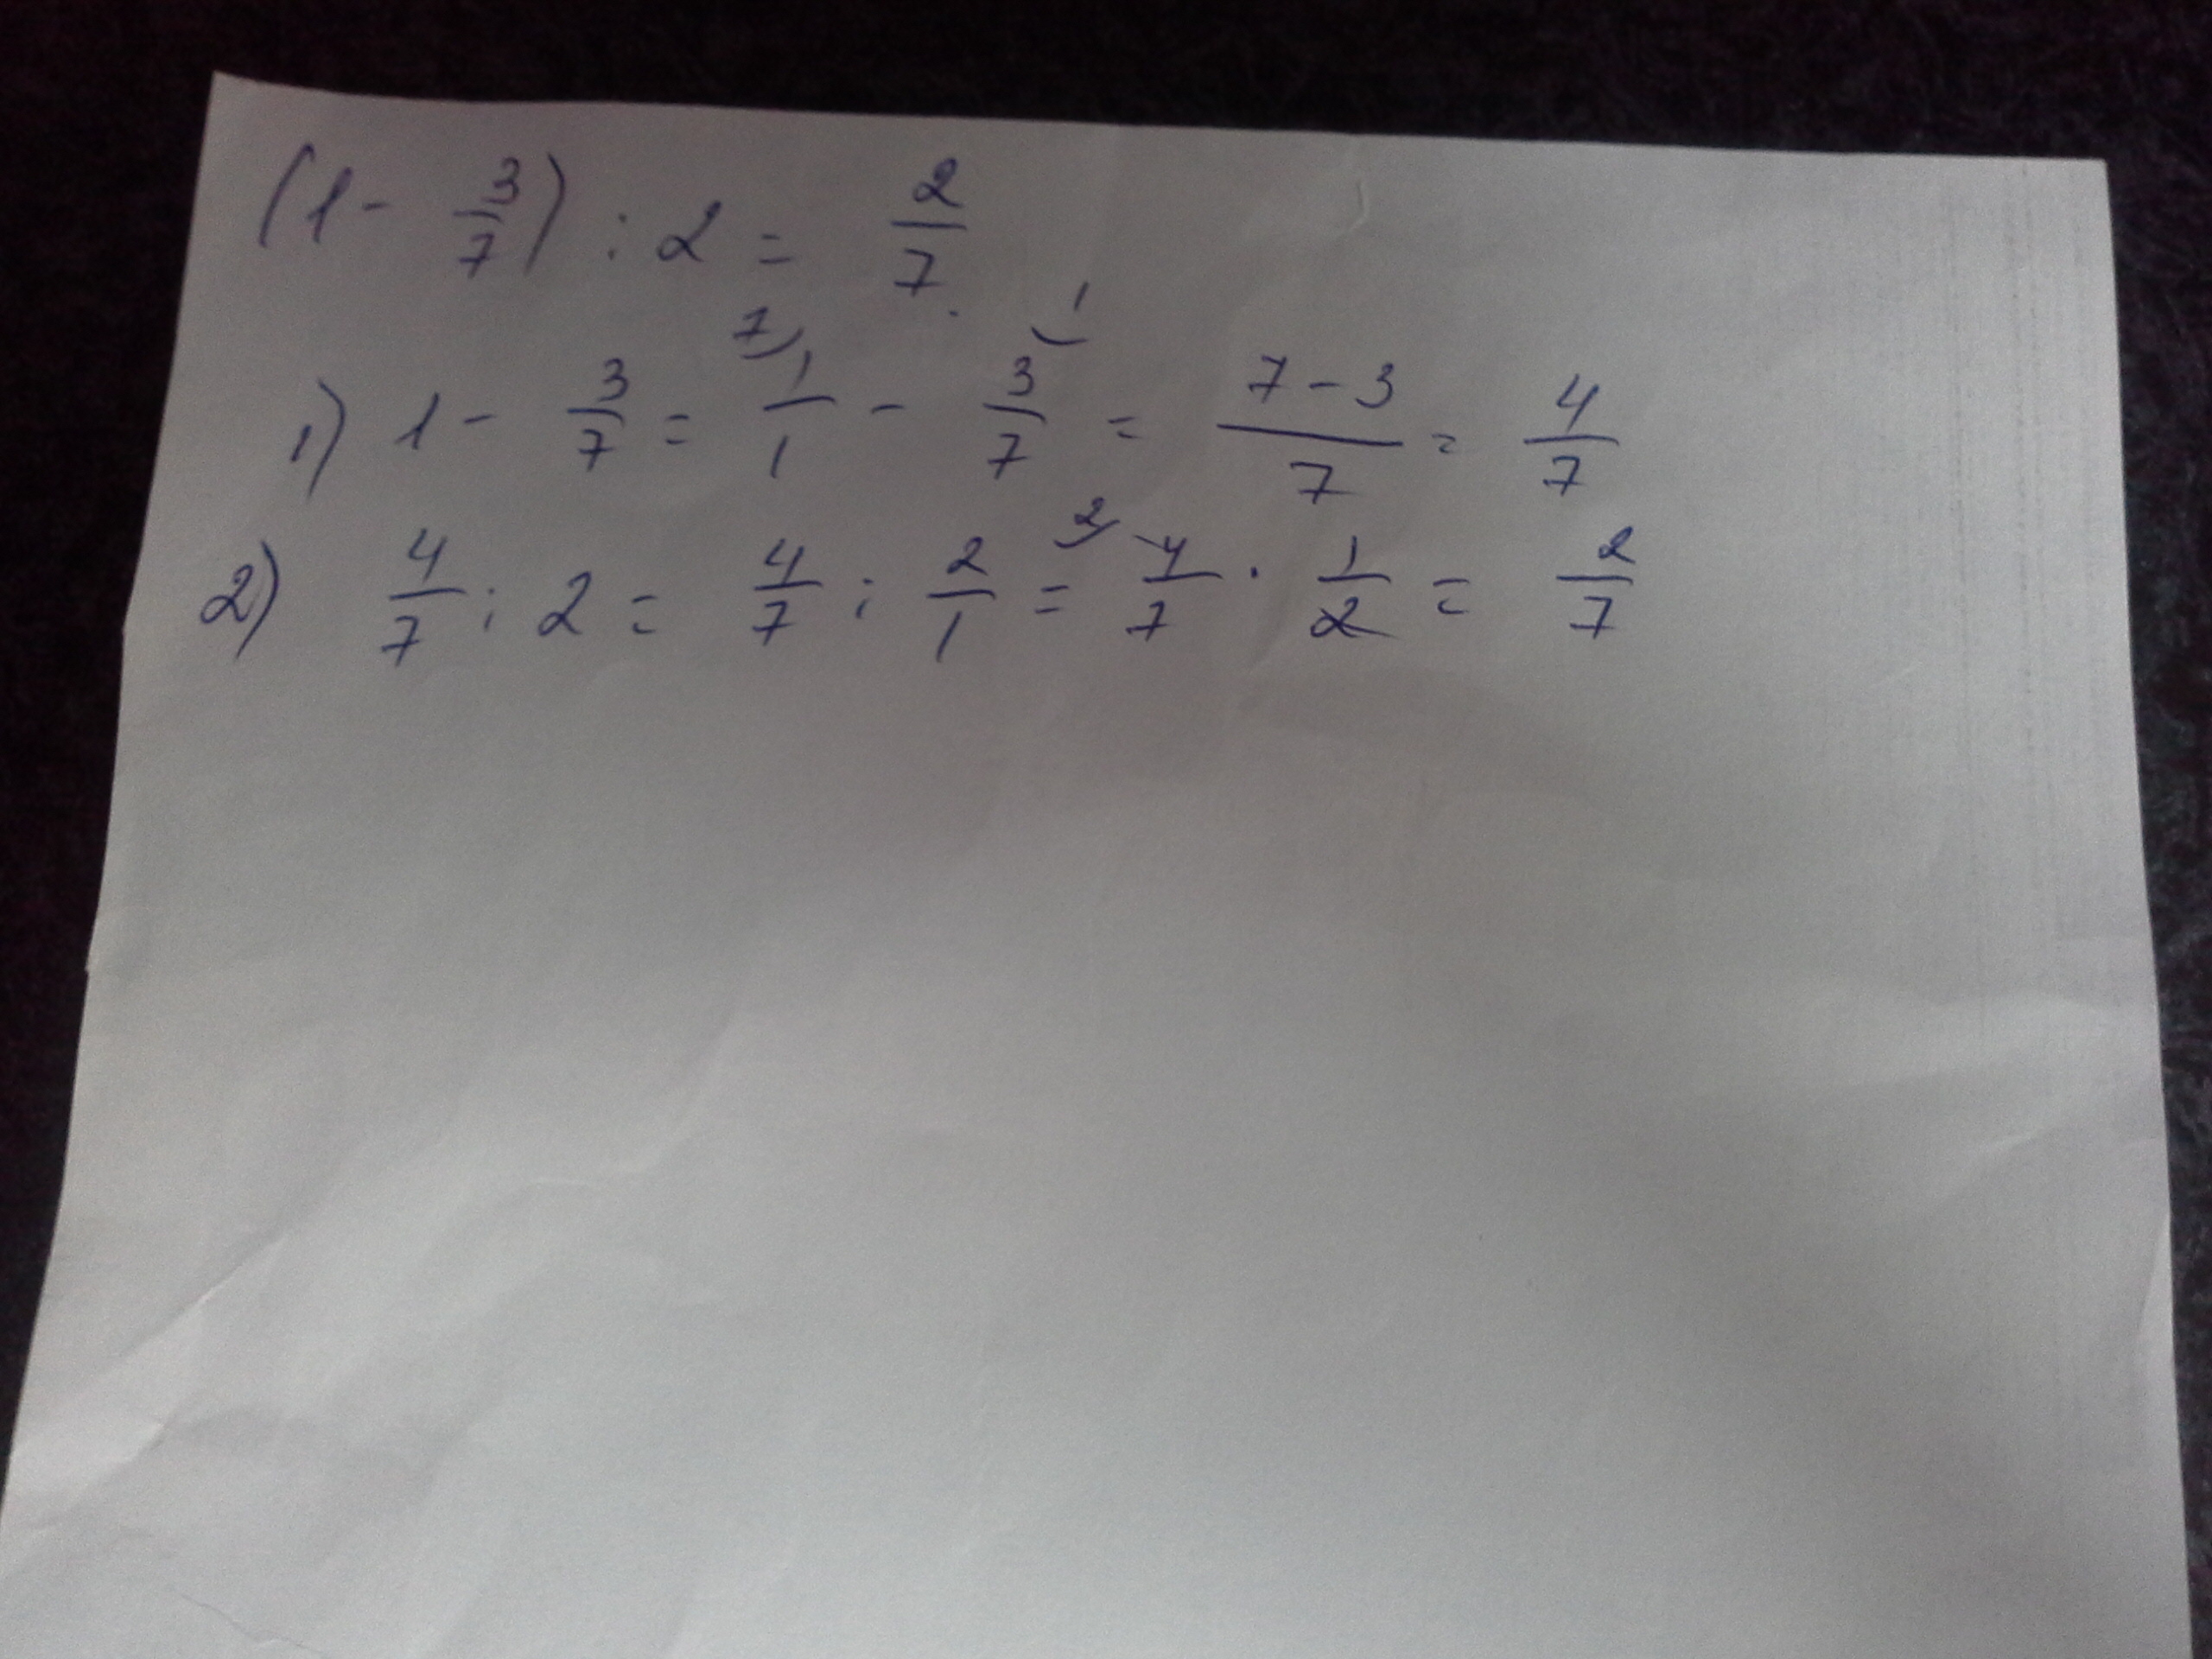 (1 - 3/7) : 2 = 2/7
1) 1 - 3/7 = 7) 1/1 - 1) 3/7 = 7 - 3/7 = 4/7
2) 4/7 : 2 = 4/7 : 2/1 = 2) 4/7 · 1/2 = 2/7